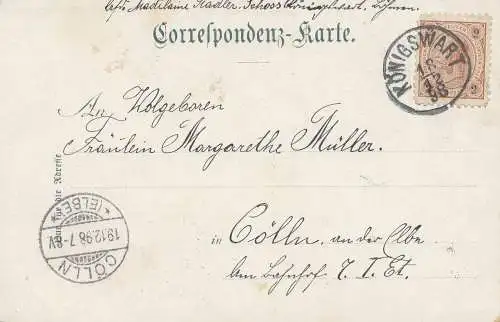 Madelaine Stadler, Schloss Königswart, Böhmen.
Correspondenz-Karte.
KÖNIGSWART
98
2
An Holgeboren
Fräulein Margarethe Müller.
in Cölln, an der Elbe
Am Bahnhof 7. I. Et.
die Adresse
CÖLLN
* (ELBE) *
19.12.98.7-8V.